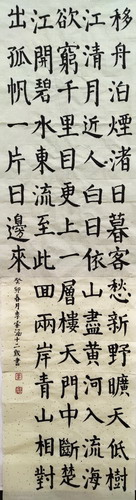 移舟泊煙渚日暮客愁新野曠天低樹
江清月近人白日依山盡黃河入流海
欲窮千里目更上一層樓天門中斷楚
江開碧水東流至此回兩岸青山相對
出孤帆一片日邊來
癸卯春月李家涵十二歲書